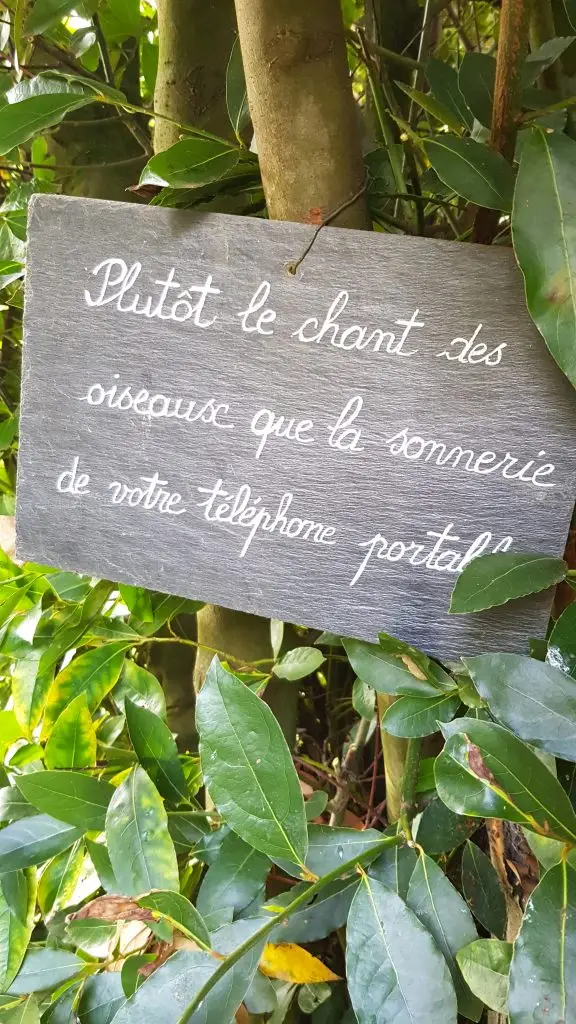 Plutôt le chant des
oiseaux que la sonnerie
de votre téléphone portable